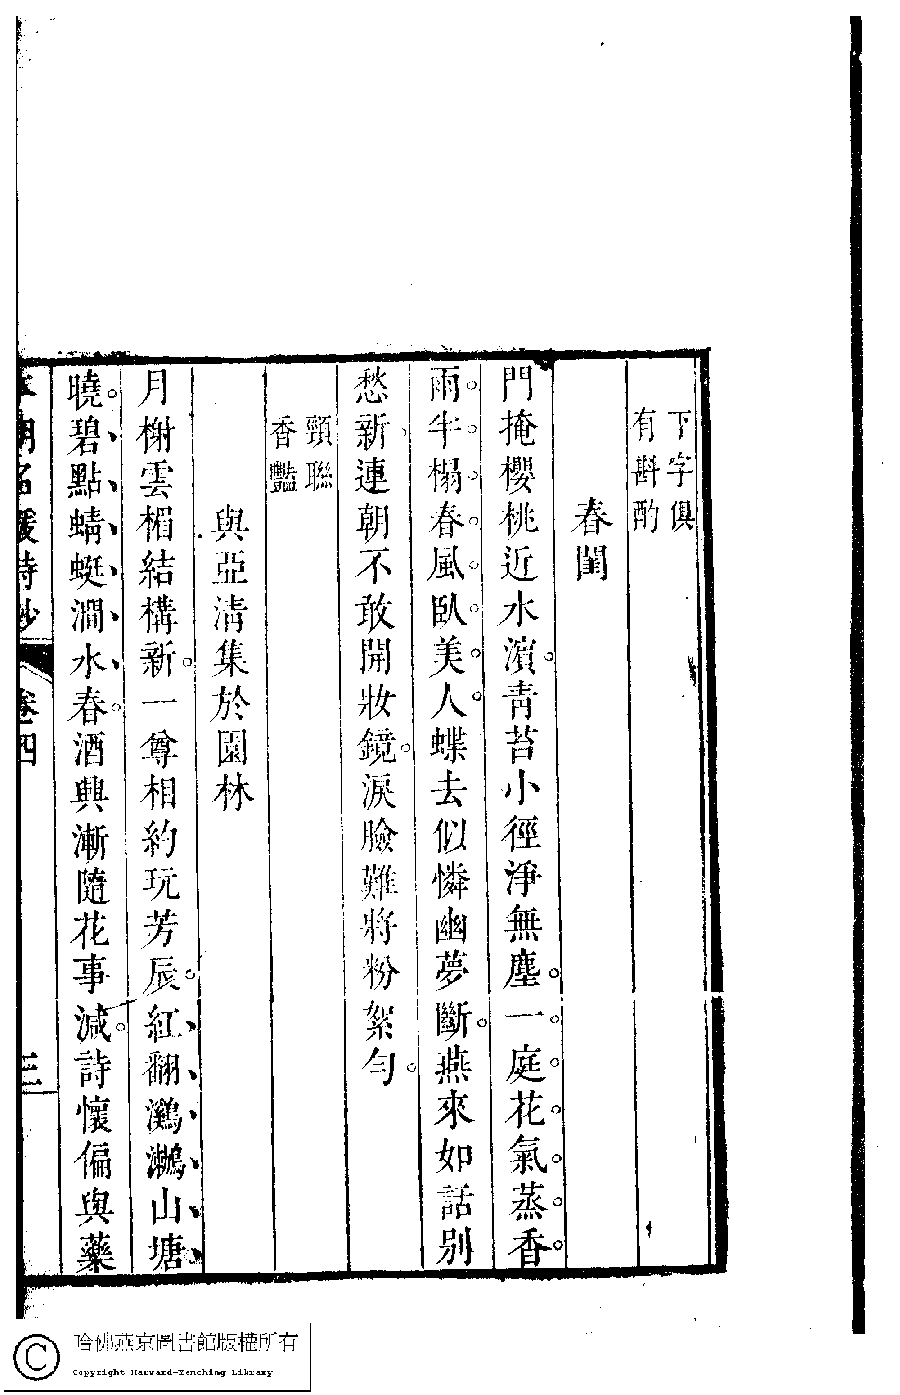 下字俱
有斟酌
春閨
門掩櫻桃近水濵青苔小徑淨無塵一庭花氣蒸香
雨半榻春風臥美人蝶去似憐幽夢斷燕來如話別
愁新連朝不敢開妝鏡淚臉難將粉絮勻
頸聯
香豔
與亞清集於園林
月榭雲楣結構新一尊相約玩芳辰紅翻鸂鷘山塘
曉碧點蜻蜓澗水春酒興漸隨花事減詩懷偏與藥
本朝名媛詩鈔
卷四
三
哈佛燕京圖書館版權所有
Copyright Harvard-Yenching Library